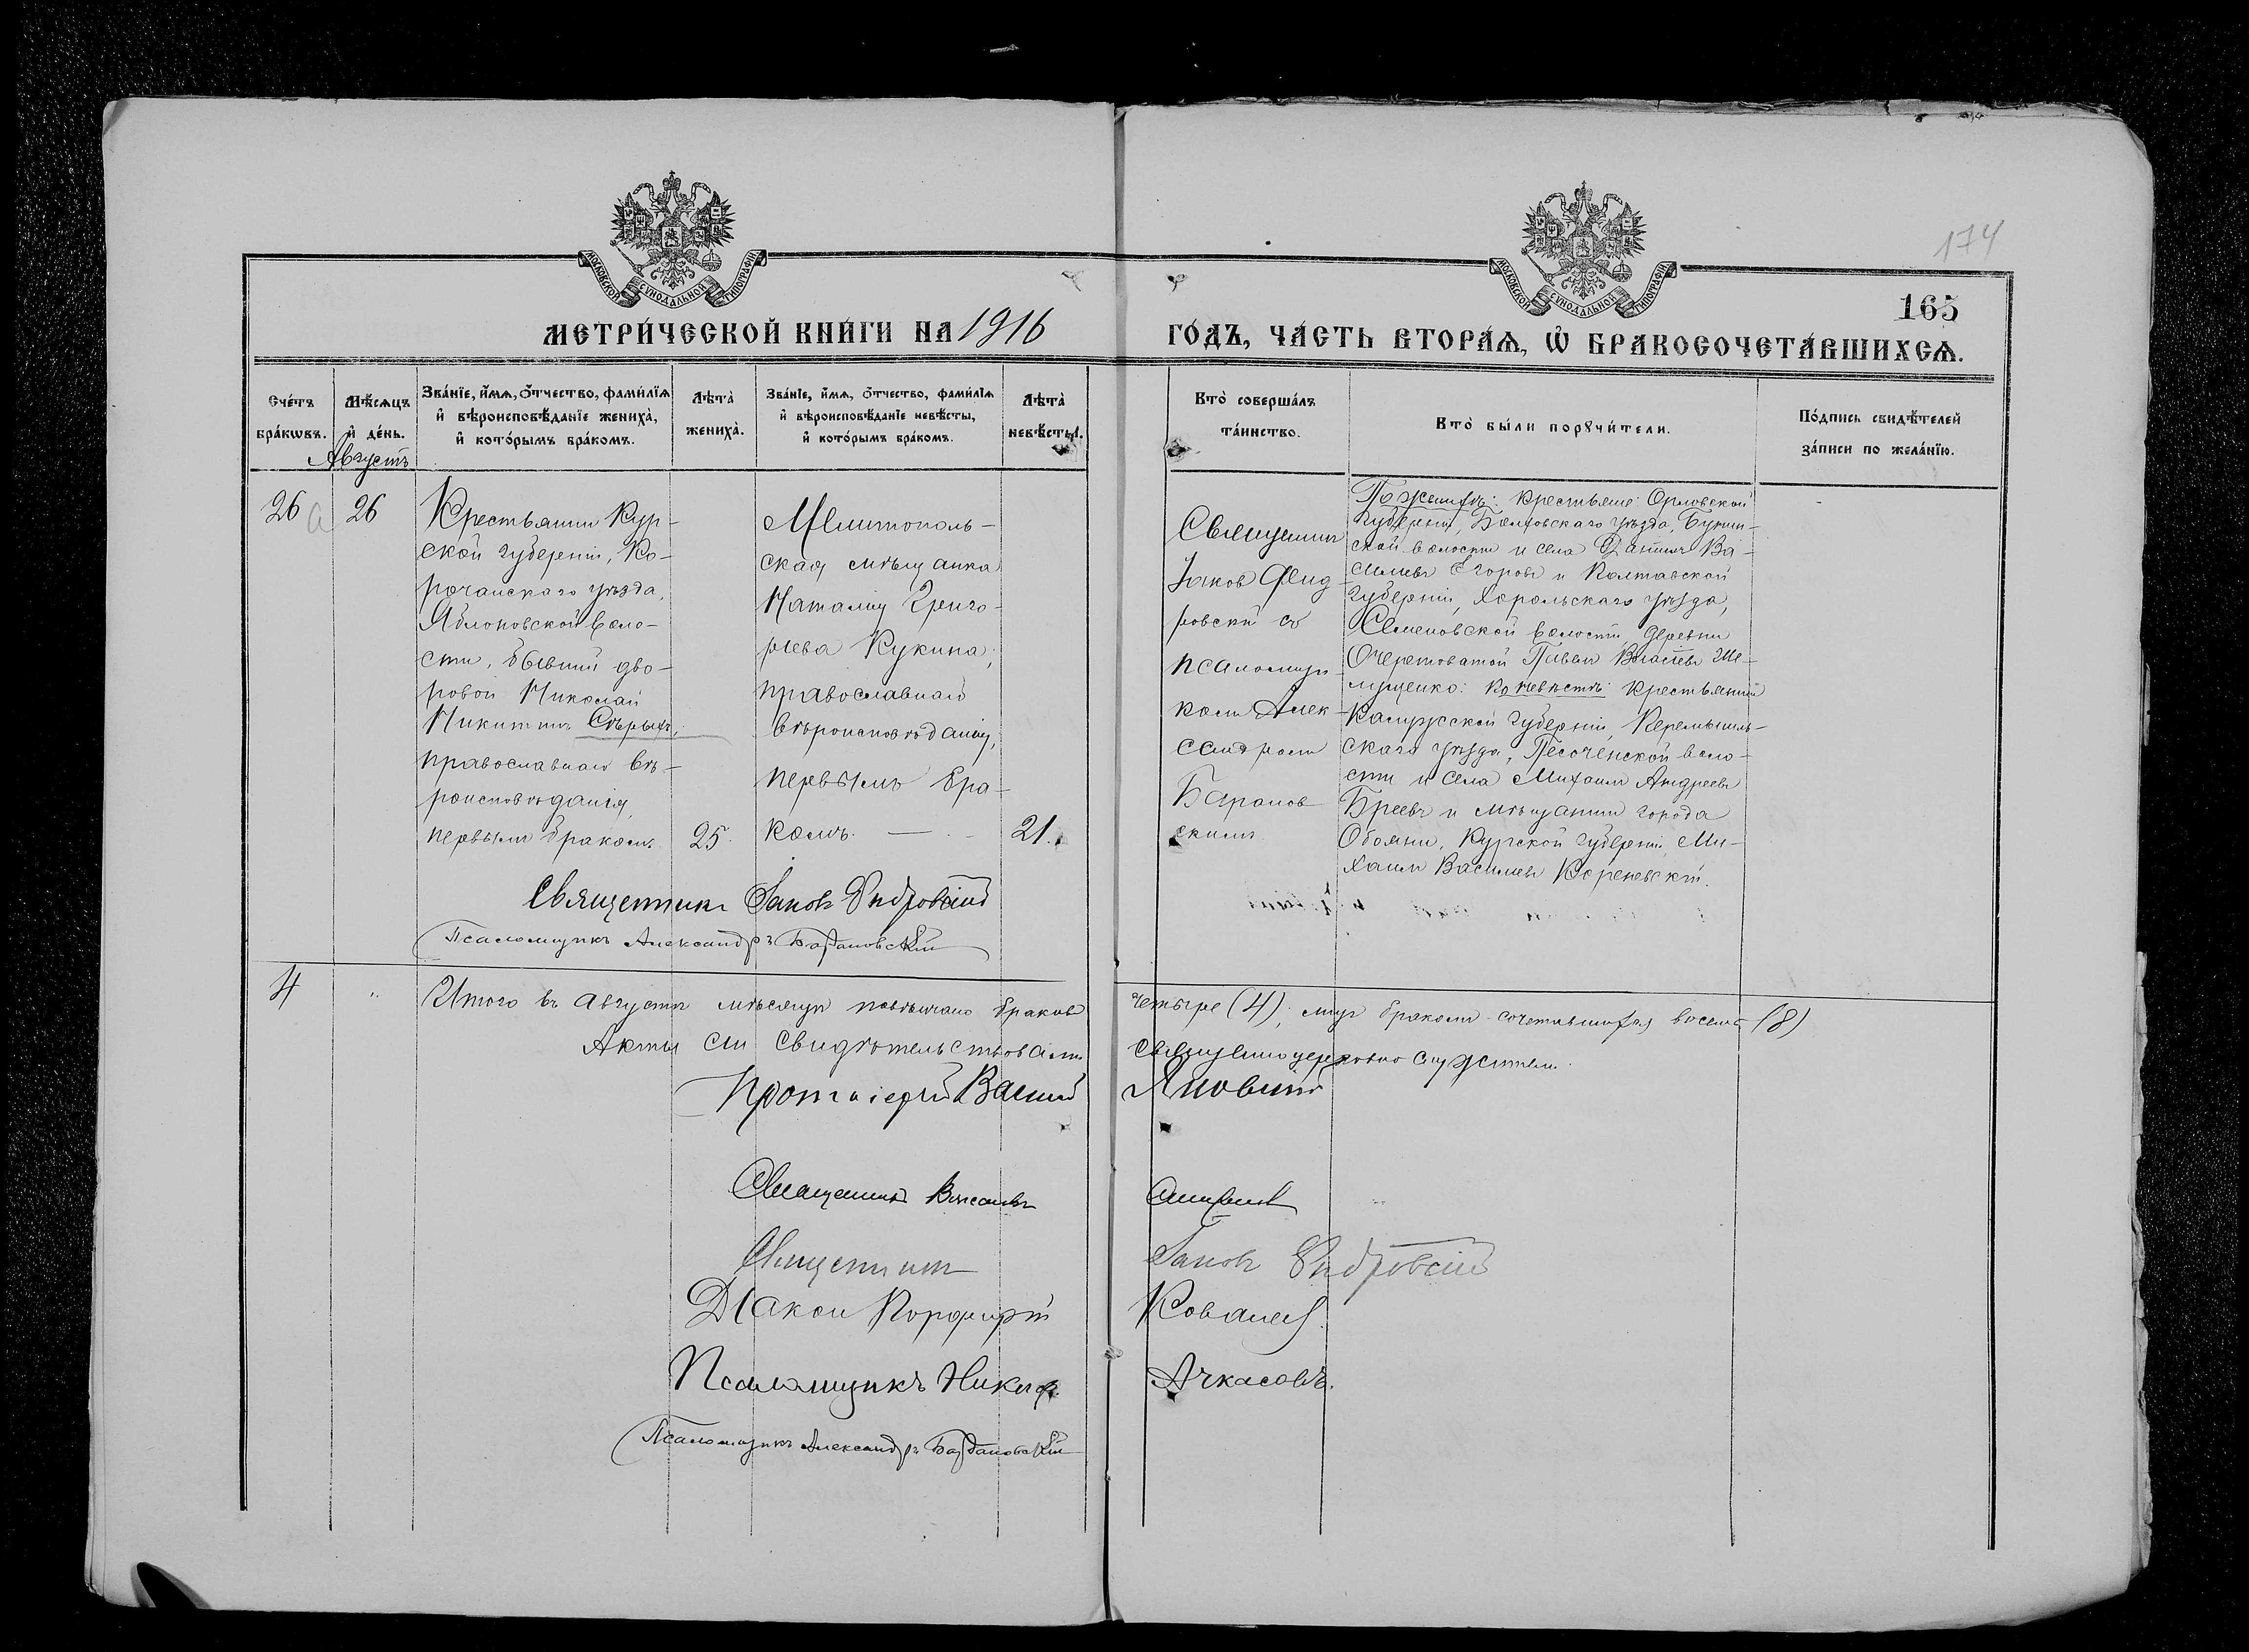 174
165
МОСКОВСКОЙ СѴНОДАЛЬНОЙ ТИПОГРАФІИ
МОСКОВСКОЙ СѴНОДАЛЬНОЙ ТИПОГРАФІИ
МЕТРИ́ЧЕСКОЙ КНИ́ГИ НА 1916
ГО́ДЪ, ЧА́СТЬ ВТОРА́Ѧ, Ѡ҆ БРАКОСОЧЕТА́ВШИХСѦ.
Сче́тъ
бра́кѡвъ.
Мѣ́сѧцъ
и҆ де́нь.
Августъ
Зва́нїе, и҆́мѧ, ѻ҆́тчество, фами́лїѧ
и҆ вѣроисповѣ́данїе жениха̀,
и҆ кото́рымъ бра́комъ.
Лѣ́та̀
жениха̀.
Зва́нїе, и҆́мѧ, ѻ҆́тчество, фами́лїѧ
и҆ вѣроисповѣ́данїе невѣ́сты,
и҆ кото́рымъ бра́комъ.
Лѣ́та̀
невѣ́сты.
Кто̀ соверша́лъ
та́инство.
Кто̀ бы́ли порꙋчи́тели.
По́дпись свидѣ́телей
за́писи по жела́нїю.
26 а
26
Крестьянин Кур-
ской губерніи, Ко-
рочанскаго уѣзда,
Яблоновской воло-
сти, бывшій дво-
ровой Николай
Никитинъ Сѣрыхъ,
православнаго вѣ-
роисповѣданія,
первымъ бракомъ.
25.
Мелитополь-
ская мѣщанка
Наталія Григо-
рьева Кукина,
православнаго
вѣроисповѣданія,
первымъ бра-
комъ. —
21.
Священник
Іаков Фид-
ровскій со
псаломщи-
ком Алек-
сандром
Баранов-
скимъ
По женихѣ: крестьяне Орловской
губерніи, Болховскаго уѣзда,
ской волости и села Ва-
сильевъ Егоровъ и Полтавской
губерніи, Хорольскаго уѣзда,
Семеновской волости, деревни
Очеретоватой Павел Власіевъ Ше-
лущенко: по невѣстѣ: крестьянин
Калужской губерніи, Перемышль-
скаго уѣзда, Песоченской воло-
сти и села Михаилъ Андреевъ
Бреевъ и мѣщанин города
Обояни, Курской губерніи, Ми-
хаил Васильевъ Кореневскій.
Священникъ Іаковъ Фидровскій
Псаломщикъ Александръ Барановскій
4
"
Итого въ августѣ мѣсяцѣ повѣнчано браков четыре (4), лиц браком сочетавшихся восемь (8)
Акты сіи свидѣтельствовали священноцерковнослужители:
Протоіерей Васил Яновскій
Священникъ
Священник Іаковъ Фидровскій
Діакон Порфирій Ковалевъ
Псаломщикъ Никиф. Ачкасовъ.
Псаломщикъ Александръ Барановскій